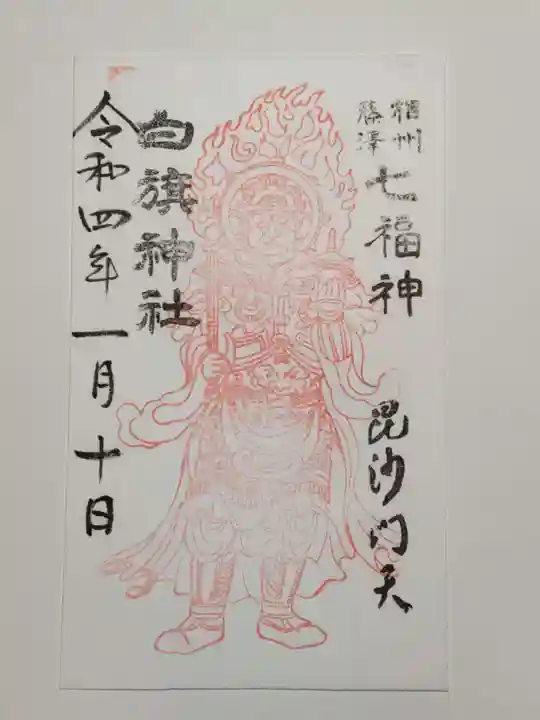 相州
藤澤
七福神 毘沙門天
白旗神社
令和四年一月十日